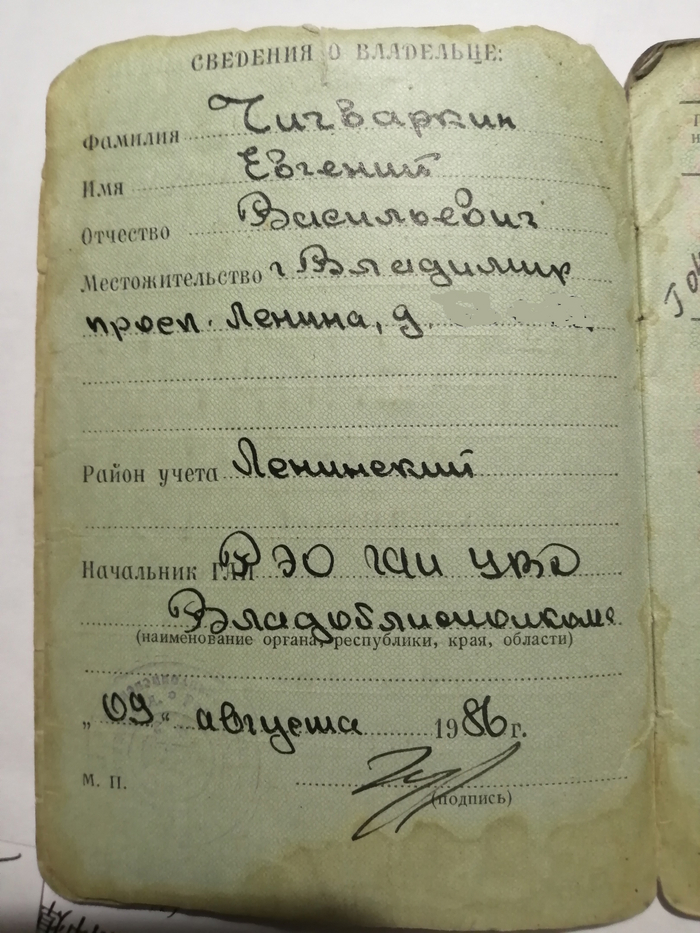 СВЕДЕНИЯ О ВЛАДЕЛЬЦЕ:
Фамилия Чигваркин
Имя Евгений
Отчество Васильевич
Местожительство г Владимир
просп. Ленина, д.
Район учета Ленинский
Начальник ГАИ РЭО ГАИ УВД
Владоблисполкома
(наименование органа, республики, края, области)
„09“ августа 1986 г.
М. П.
(подпись)